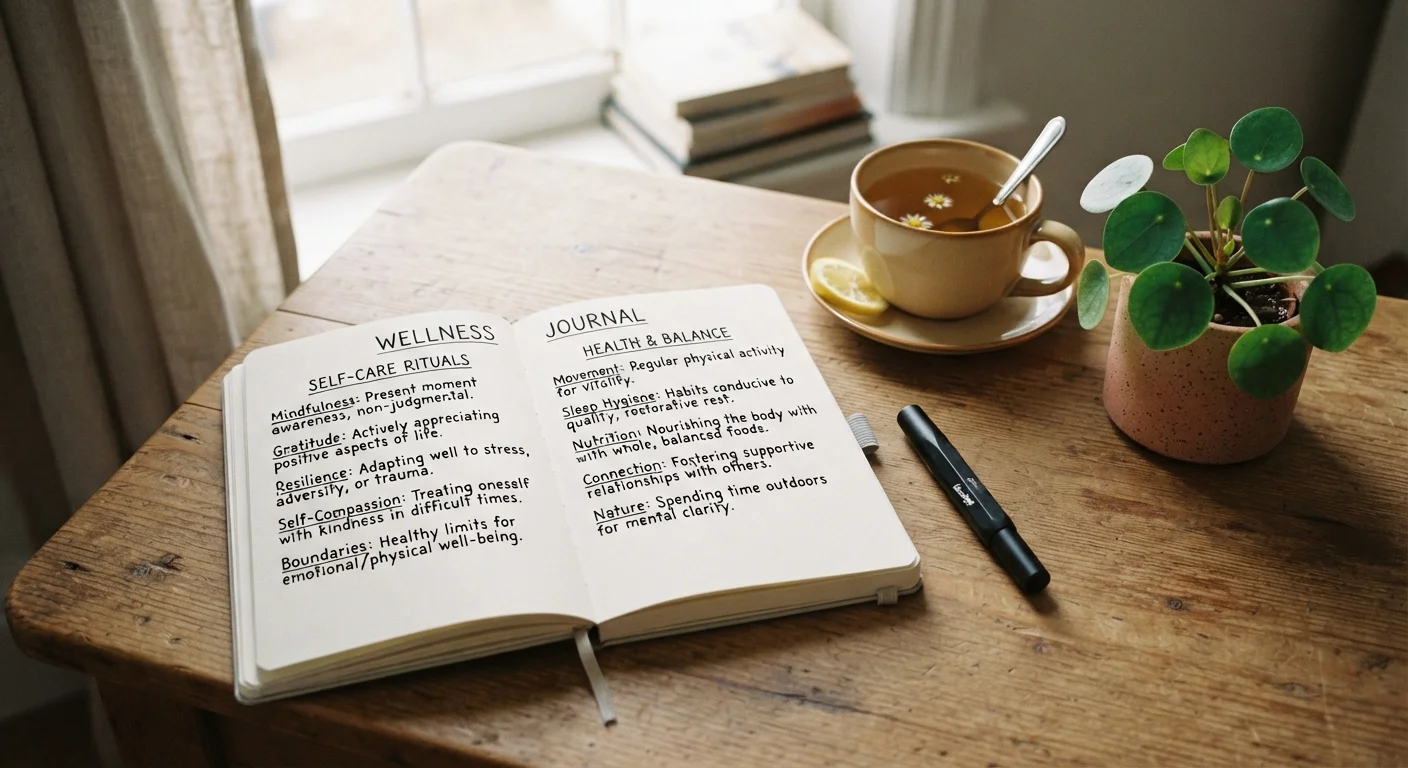 WELLNESS
SELF-CARE RITUALS
Mindfulness: Present moment
awareness, non-judgmental.
Gratitude: Actively appreciating
positive aspects of life.
Resilience: Adapting well to stress,
adversity, or trauma.
Self-Compassion: Treating oneself
with kindness in difficult times.
Boundaries: Healthy limits for
emotional/physical well-being.
JOURNAL
HEALTH & BALANCE
Movement: Regular physical activity
for vitality.
Sleep Hygiene: Habits conducive to
quality, restorative rest.
Nutrition: Nourishing the body with
with whole, balanced foods.
Connection: Fostering supportive
relationships with others.
Nature: Spending time outdoors
for mental clarity.